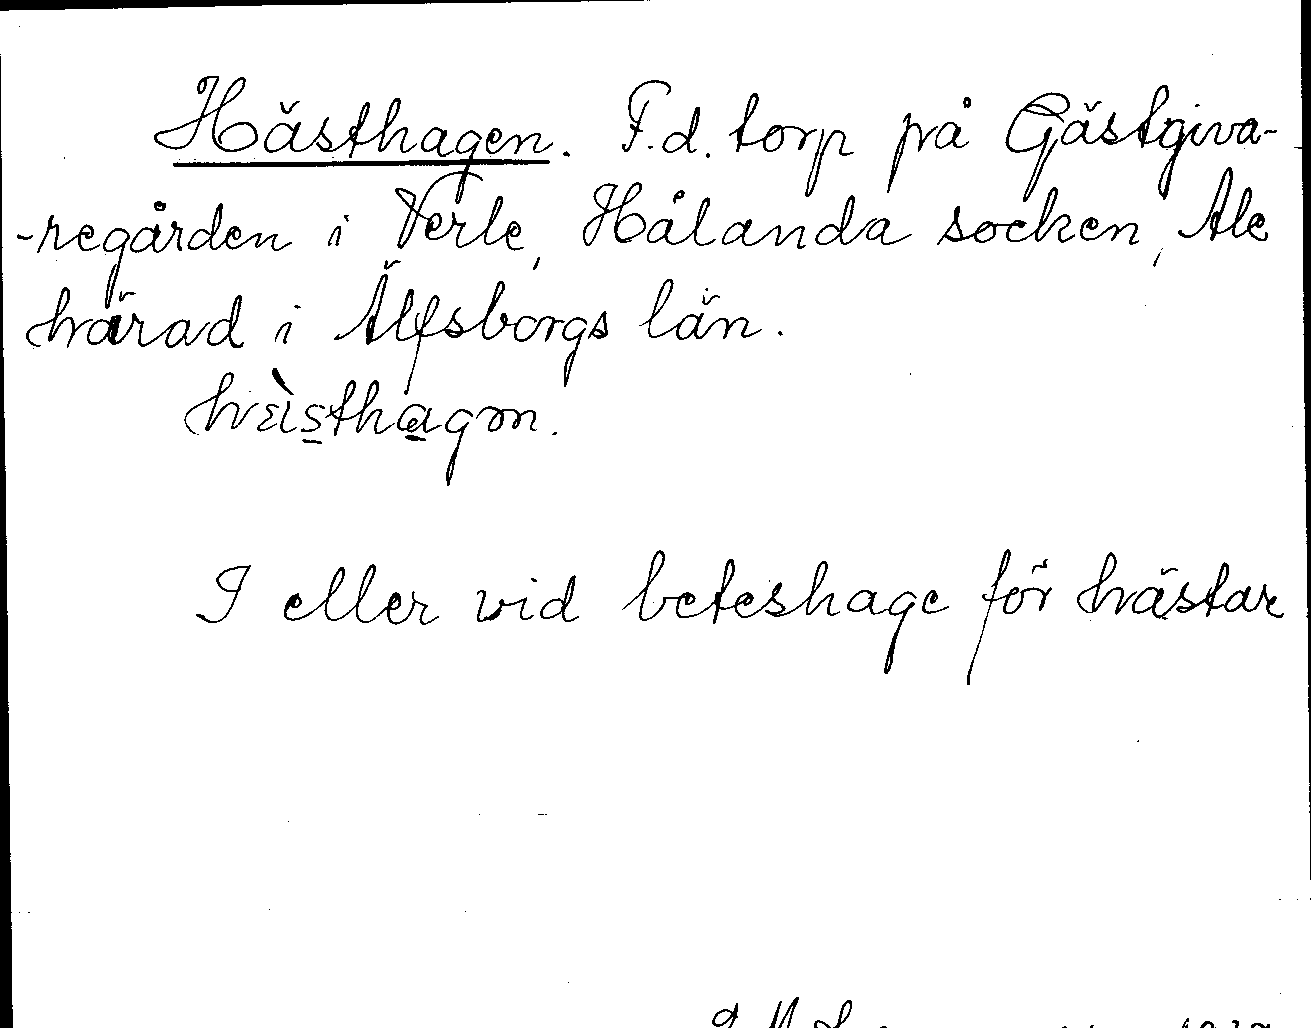 Hästhagen. F.d. torp på Gästgiva-
-regården i Verle, Hålanda socken, Ale
härad i Älfsborgs län.
I eller vid beteshage för hästar